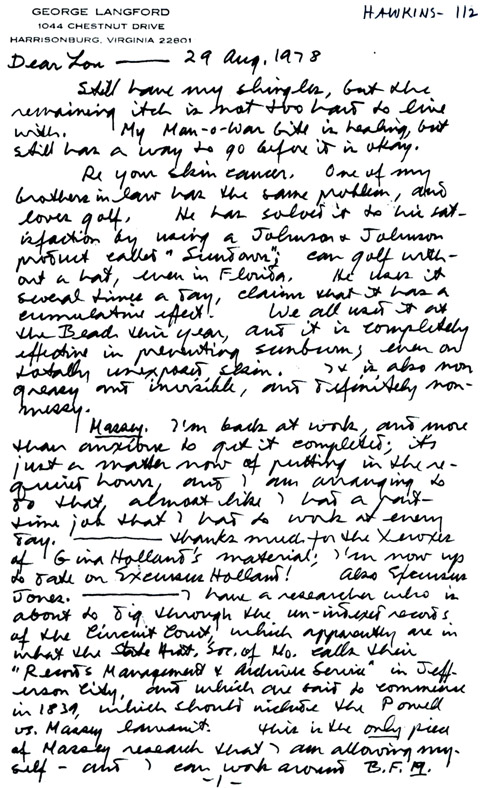 GEORGE LANGFORD
1044 CHESTNUT DRIVE
HARRISONBURG, VIRGINIA 22801
HAWKINS- 112
Dear Lou — 29 Aug, 1978
Still have my shingles, but the
remaining itch is not too hard to live
with. My Man-o-War bite is healing, but
still has a way to go before it is okay.
Re your skin cancer. One of my
brothers in law has the same problem, and
loves golf. He has solved it to his sat-
isfaction by using a Johnson & Johnson
product called "Sundown"; can golf with-
out a hat, even in Florida. He uses it
several times a day, claims that it has a
cumulative effect! We all used it at
the Beach this year, and it is completely
effective in preventing sunburn, even on
totally unexposed skin. It is also non
greasy and invisible, and definitely non-
messy.
Massey. I'm back at work, and more
than anxious to get it completed; its
just a matter now of putting in the re-
quired hours, and I am arranging to
do that, almost like I had a part-
time job that I had to work at every
day. — Thanks much for the Xeroxes
of Gina Holland's material; I'm now up
to date on Excursus Holland! Also Excursus
Jones. — I have a researcher who is
about to dig through the un-indexed records
of the Circuit Court, which apparently are in
what the State Hist. Soc. of Mo. calls their
"Records Management & Archives Service" in Jeff-
erson City, and which are said to commence
in 1839, which should include the Powell
vs. Massey lawsuit. This is the only piece
of Massey research that I am allowing my-
self - and I can work around B.F.M.
-1-